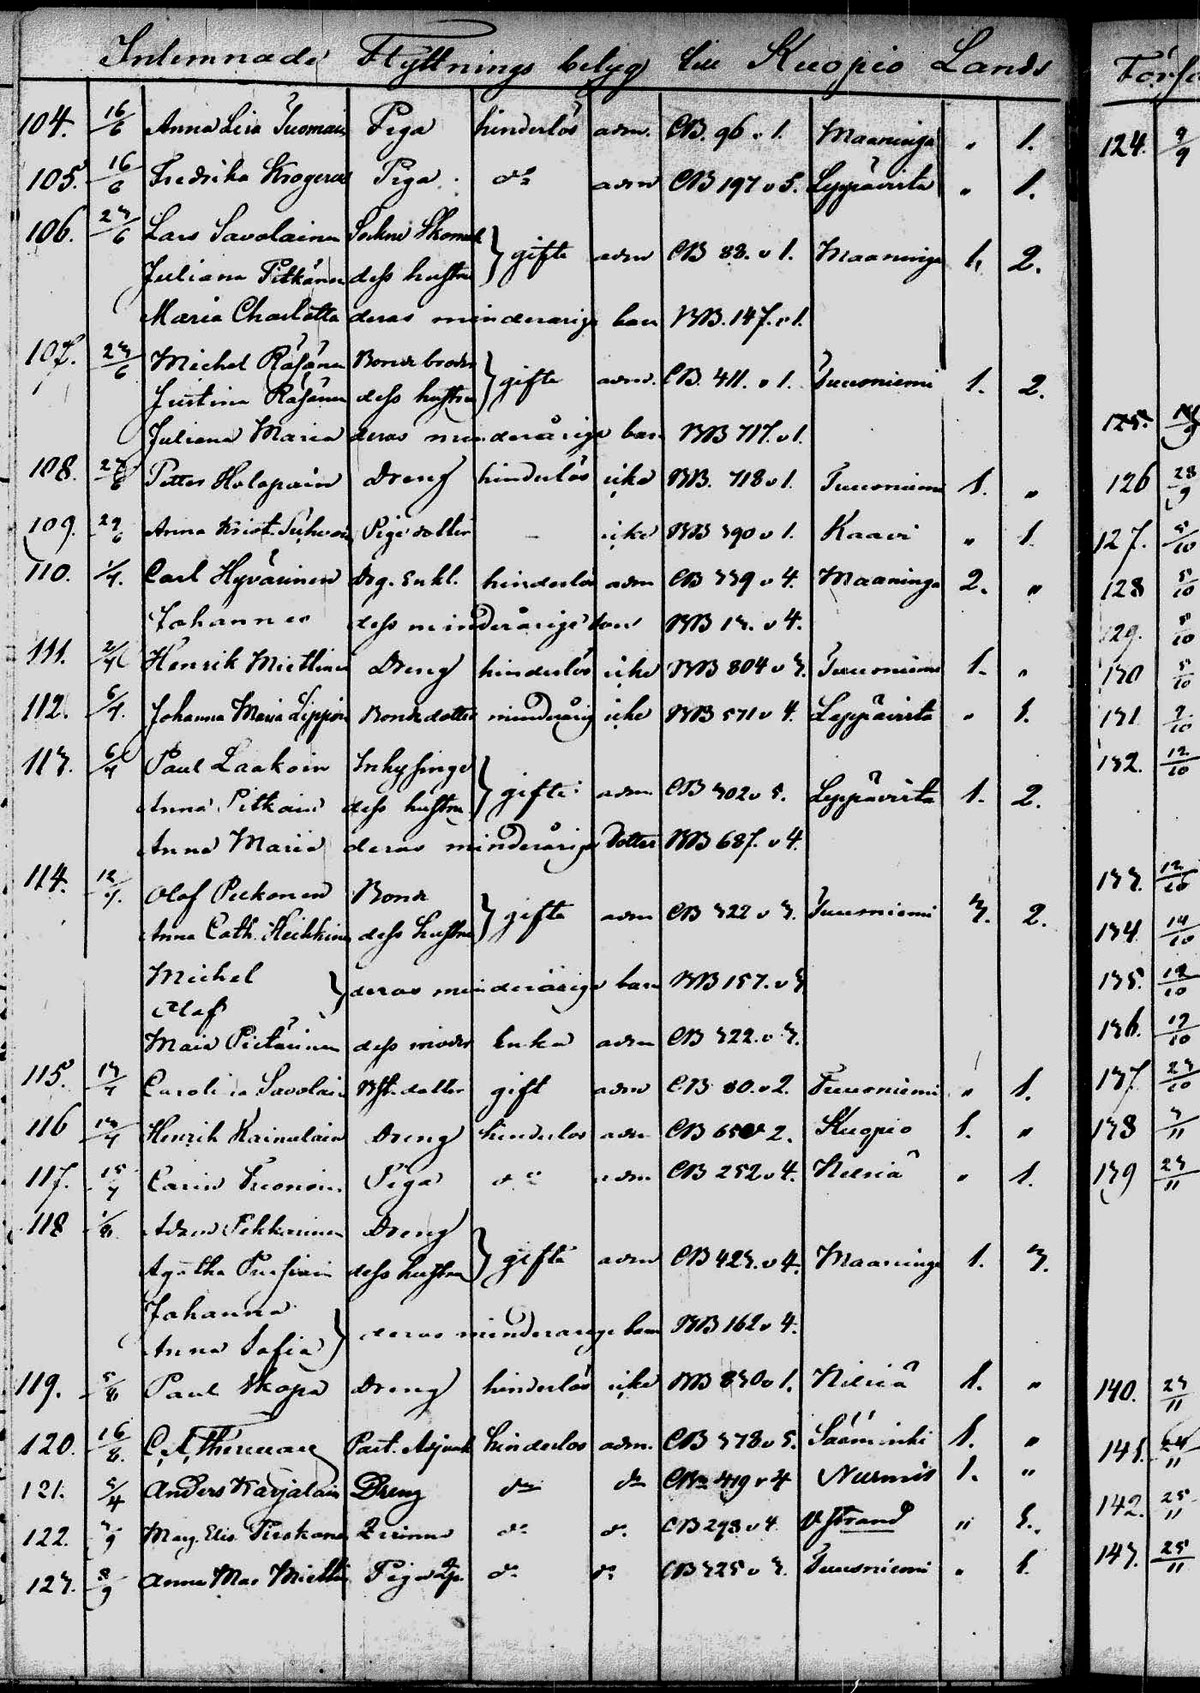 Inlemnade Flyttnings betyg till Kuopio Lands
104. 16/6 Anna Lisa Tuomain Piga hinderlös adm. CB. 96. v. 1. Maaninga " 1.
105. 16/6 Fredrika Krogerus Piga do adm CB 197 v 5. Leppävirta " 1.
106. 23/6 Lars Savolainen Sockne Skomak } gifte adm CB 88. v 1. Maaninga 1. 2.
Juliana Pitkänen dess hustru
Maria Charlotta deras minderåriga barn BB. 147. v 1.
107. 23/6 Michel Räsänen Bonde broder } gifte adm. CB. 411. v 1. Tuusniemi 1. 2.
Justina Räsänen dess hustru
Juliana Maria deras minderåriga barn BB 717. v 1.
108. Petter Holopain Dreng hinderlös icke BB. 718 v 1. Tuusniemi 1. "
109. Anna Krist. Pige dotter - icke BB 390 v 1. Kaavi " 1.
110. 1/7. Carl Hyvärinen Drg. Enkl. hinderlös adm CB 339 v 4. Maaninga 2. "
Johannes dess minderårige son BB 13. v 4.
111. 2/7 Henrik Miettinen Dreng hinderlös icke BB 804 v 3. Tuusniemi 1. "
112. 6/7. Johanna Maria Bonde dotter minderårig icke BB 571 v 4. Leppävirta " 1.
113. 6/7 Paul Laakoin Inhysinge } gifte adm CB 302 v 5. Leppävirta 1. 2.
Anna Pitkain dess hustru
Anna Maria deras minderåriga dotter BB 687. v 4.
114. 12/7. Olof Pekonen Bonde } gifte adm CB 322 v 3. Tuusniemi 3. 2.
Anna Cath. Heikkinen dess hustru
Michel } deras minderåriga barn BB 157. v 3
Olof
Maria dess moder Enka adm CB 322. v 3.
115. 13/7 Carolina Savolain dotter gift adm CB 80. v 2. Tuusniemi " 1.
116 13/7 Henrik Kainulain Dreng hinderlös adm CB 650 v 2. Kuopio 1. "
117. 15/7 Carin Piga do adm CB 252 v 4. Nilsiä " 1.
118 1/8 Adam Pekkarinen Dreng } gifte adm CB 423. v 4. Maaninga 1. 3.
Agatha dess hustru
Johanna } deras minderåriga barn BB 162 v 4.
Anna Sofia
119. 5/8 Paul Skopa Dreng hinderlös icke BB 830 v 1. Nilsiä 1. "
120. 16/8. Past. Adjunkt hinderlös adm. CB 378 v 5. Sääminki 1. "
121. 5/4 Anders Karjalain Dreng do do 419 v 4 Nurmis 1. "
122. Marg. Elis. Pirskanen Qvinna do do CB 298 v 4. " 1.
123. 8/9 Anna Mar. Mietti Piga do do CB 325 v 3. Tuusniemi " 1.
124. 9/9
125.
126 28/9
127. 5/10
128 5/10
129. 5/10
130 5/10
131 9/10
132. 12/10
133. 12/10
134 14/10
135. 19/10
136. 19/10
137. 23/10
138 3/11
139 23/11
140. 23/11
141. 24/11
142. 25/11
143. 25/11